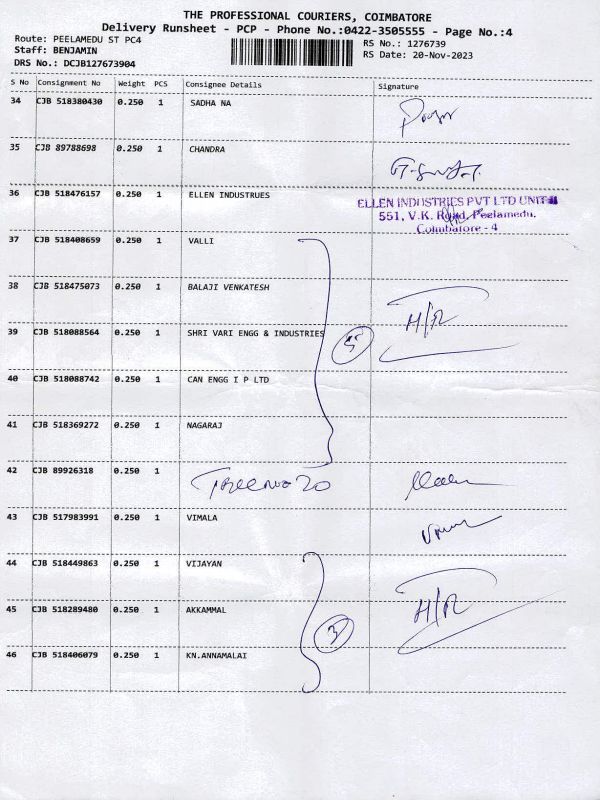 THE PROFESSIONAL COURIERS, COIMBATORE
Delivery Runsheet - PCP - Phone No.:0422-3505555 - Page No.:4
Route: PEELAMEDU ST PC4
Staff: BENJAMIN
DRS No.: DCJB127673904
RS No.: 1276739
RS Date: 20-Nov-2023
S No Consignment No Weight PCS Consignee Details Signature
34 CJB 518380430 0.250 1 SADHA NA
35 CJB 89788698 0.250 1 CHANDRA
36 CJB 518476157 0.250 1 ELLEN INDUSTRUES
ELLEN INDUSTRIES PVT LTD UNIT
551, V.K. Road, Peelamedu,
Coimbatore - 4
37 CJB 518408659 0.250 1 VALLI
38 CJB 518475073 0.250 1 BALAJI VENKATESH
H/R
39 CJB 518088564 0.250 1 SHRI VARI ENGG & INDUSTRIES
5
40 CJB 518088742 0.250 1 CAN ENGG I P LTD
41 CJB 518369272 0.250 1 NAGARAJ
42 CJB 89926318 0.250 1
43 CJB 517983991 0.250 1 VIMALA
44 CJB 518449863 0.250 1 VIJAYAN
45 CJB 518289480 0.250 1 AKKAMMAL H/R
3
46 CJB 518406079 0.250 1 KN.ANNAMALAI